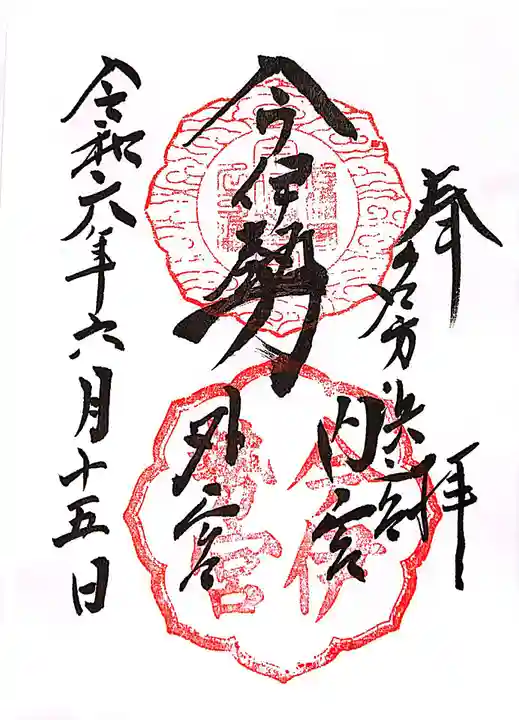 奉拝
名方浜宮
今伊勢
内宮
外宮
今伊
勢宮
令和六年六月十五日